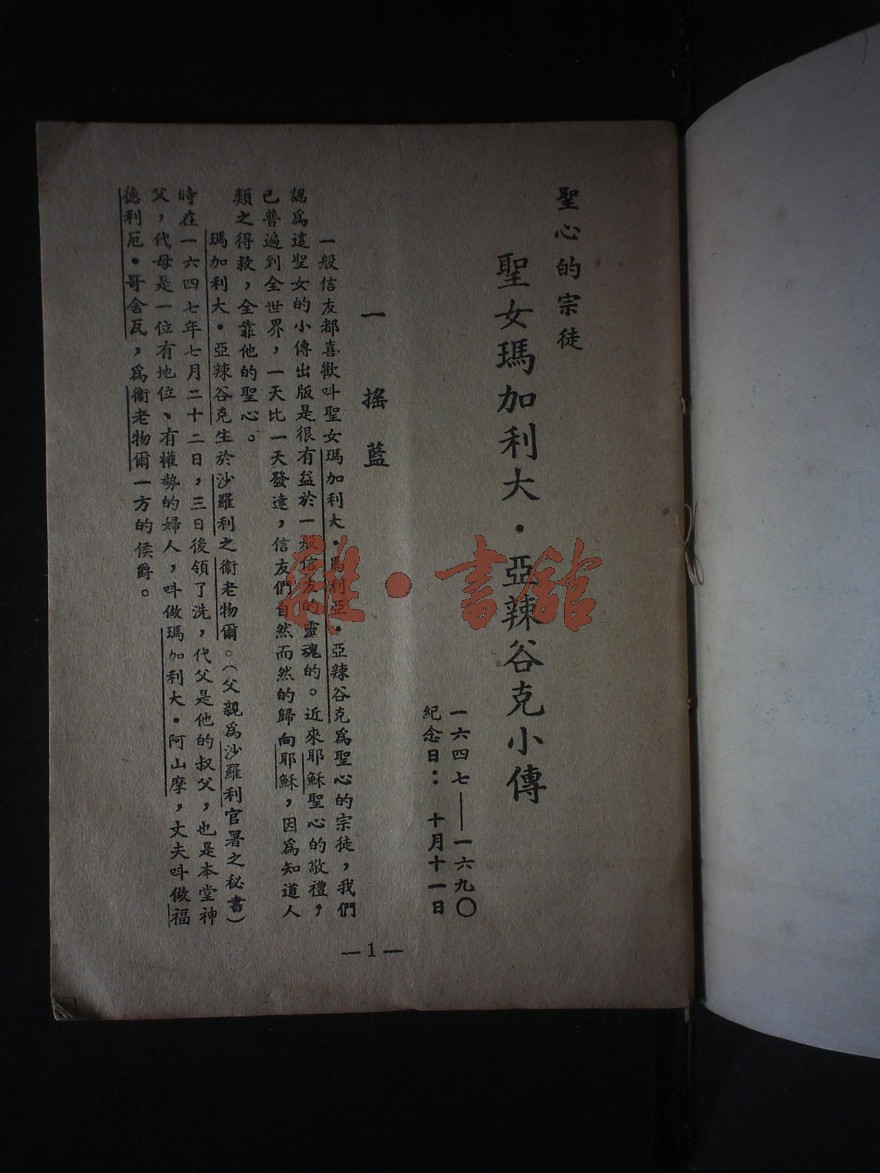 聖心的宗徒
聖女瑪加利大・亞辣谷克小傳
一六四七——一六九〇
紀念日：十月十一日
一 搖藍
一般信友都喜歡呌聖女瑪加利大・馬利亞・亞辣谷克爲聖心的宗徒，我們
認爲這聖女的小傳出版是很有益於一般信友的靈魂的。近來耶穌聖心的敬禮，
已普遍到全世界，一天比一天發達，信友們自然而然的歸向耶穌，因爲知道人
類之得救，全靠他的聖心。
瑪加利大・亞辣谷克生於沙羅利之衞老物爾。（父親爲沙羅利官署之秘書）
時在一六四七年七月二十二日，三日後領了洗，代父是他的叔父，也是本堂神
父，代母是一位有地位、有權勢的婦人，呌做瑪加利大・阿山摩，丈夫呌做福
德利厄・哥舍瓦，爲衞老物爾一方的侯爵。
—1—
雜・書館